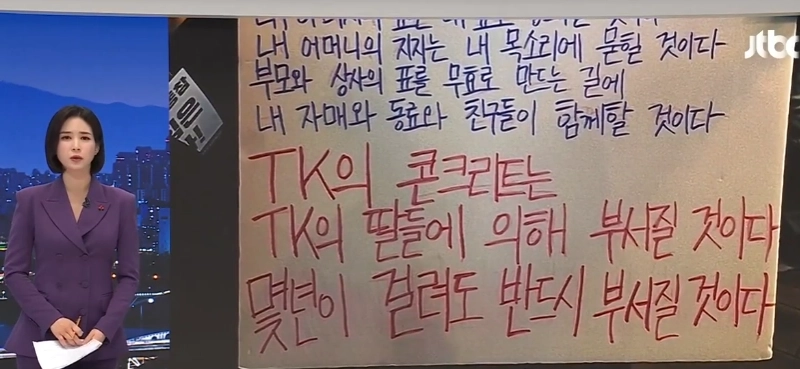 내 어머니의 지지는 내 목소리에 묻힐 것이다
jtbc
부모와 상사의 표를 무효로 만드는 길에
내 자매와 동료와 친구들이 함께할 것이다
TK의 콘크리트는
TK의 딸들에 의해 부서질 것이다
몇년이 걸려도 반드시 부서질 것이다